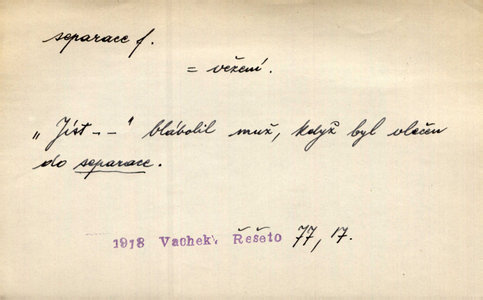 separace f.
= vězení.
„Jíst – –" blábolil muž, když byl vlečen
do separace.
1918 Vachek, Řešeto 77, 17.